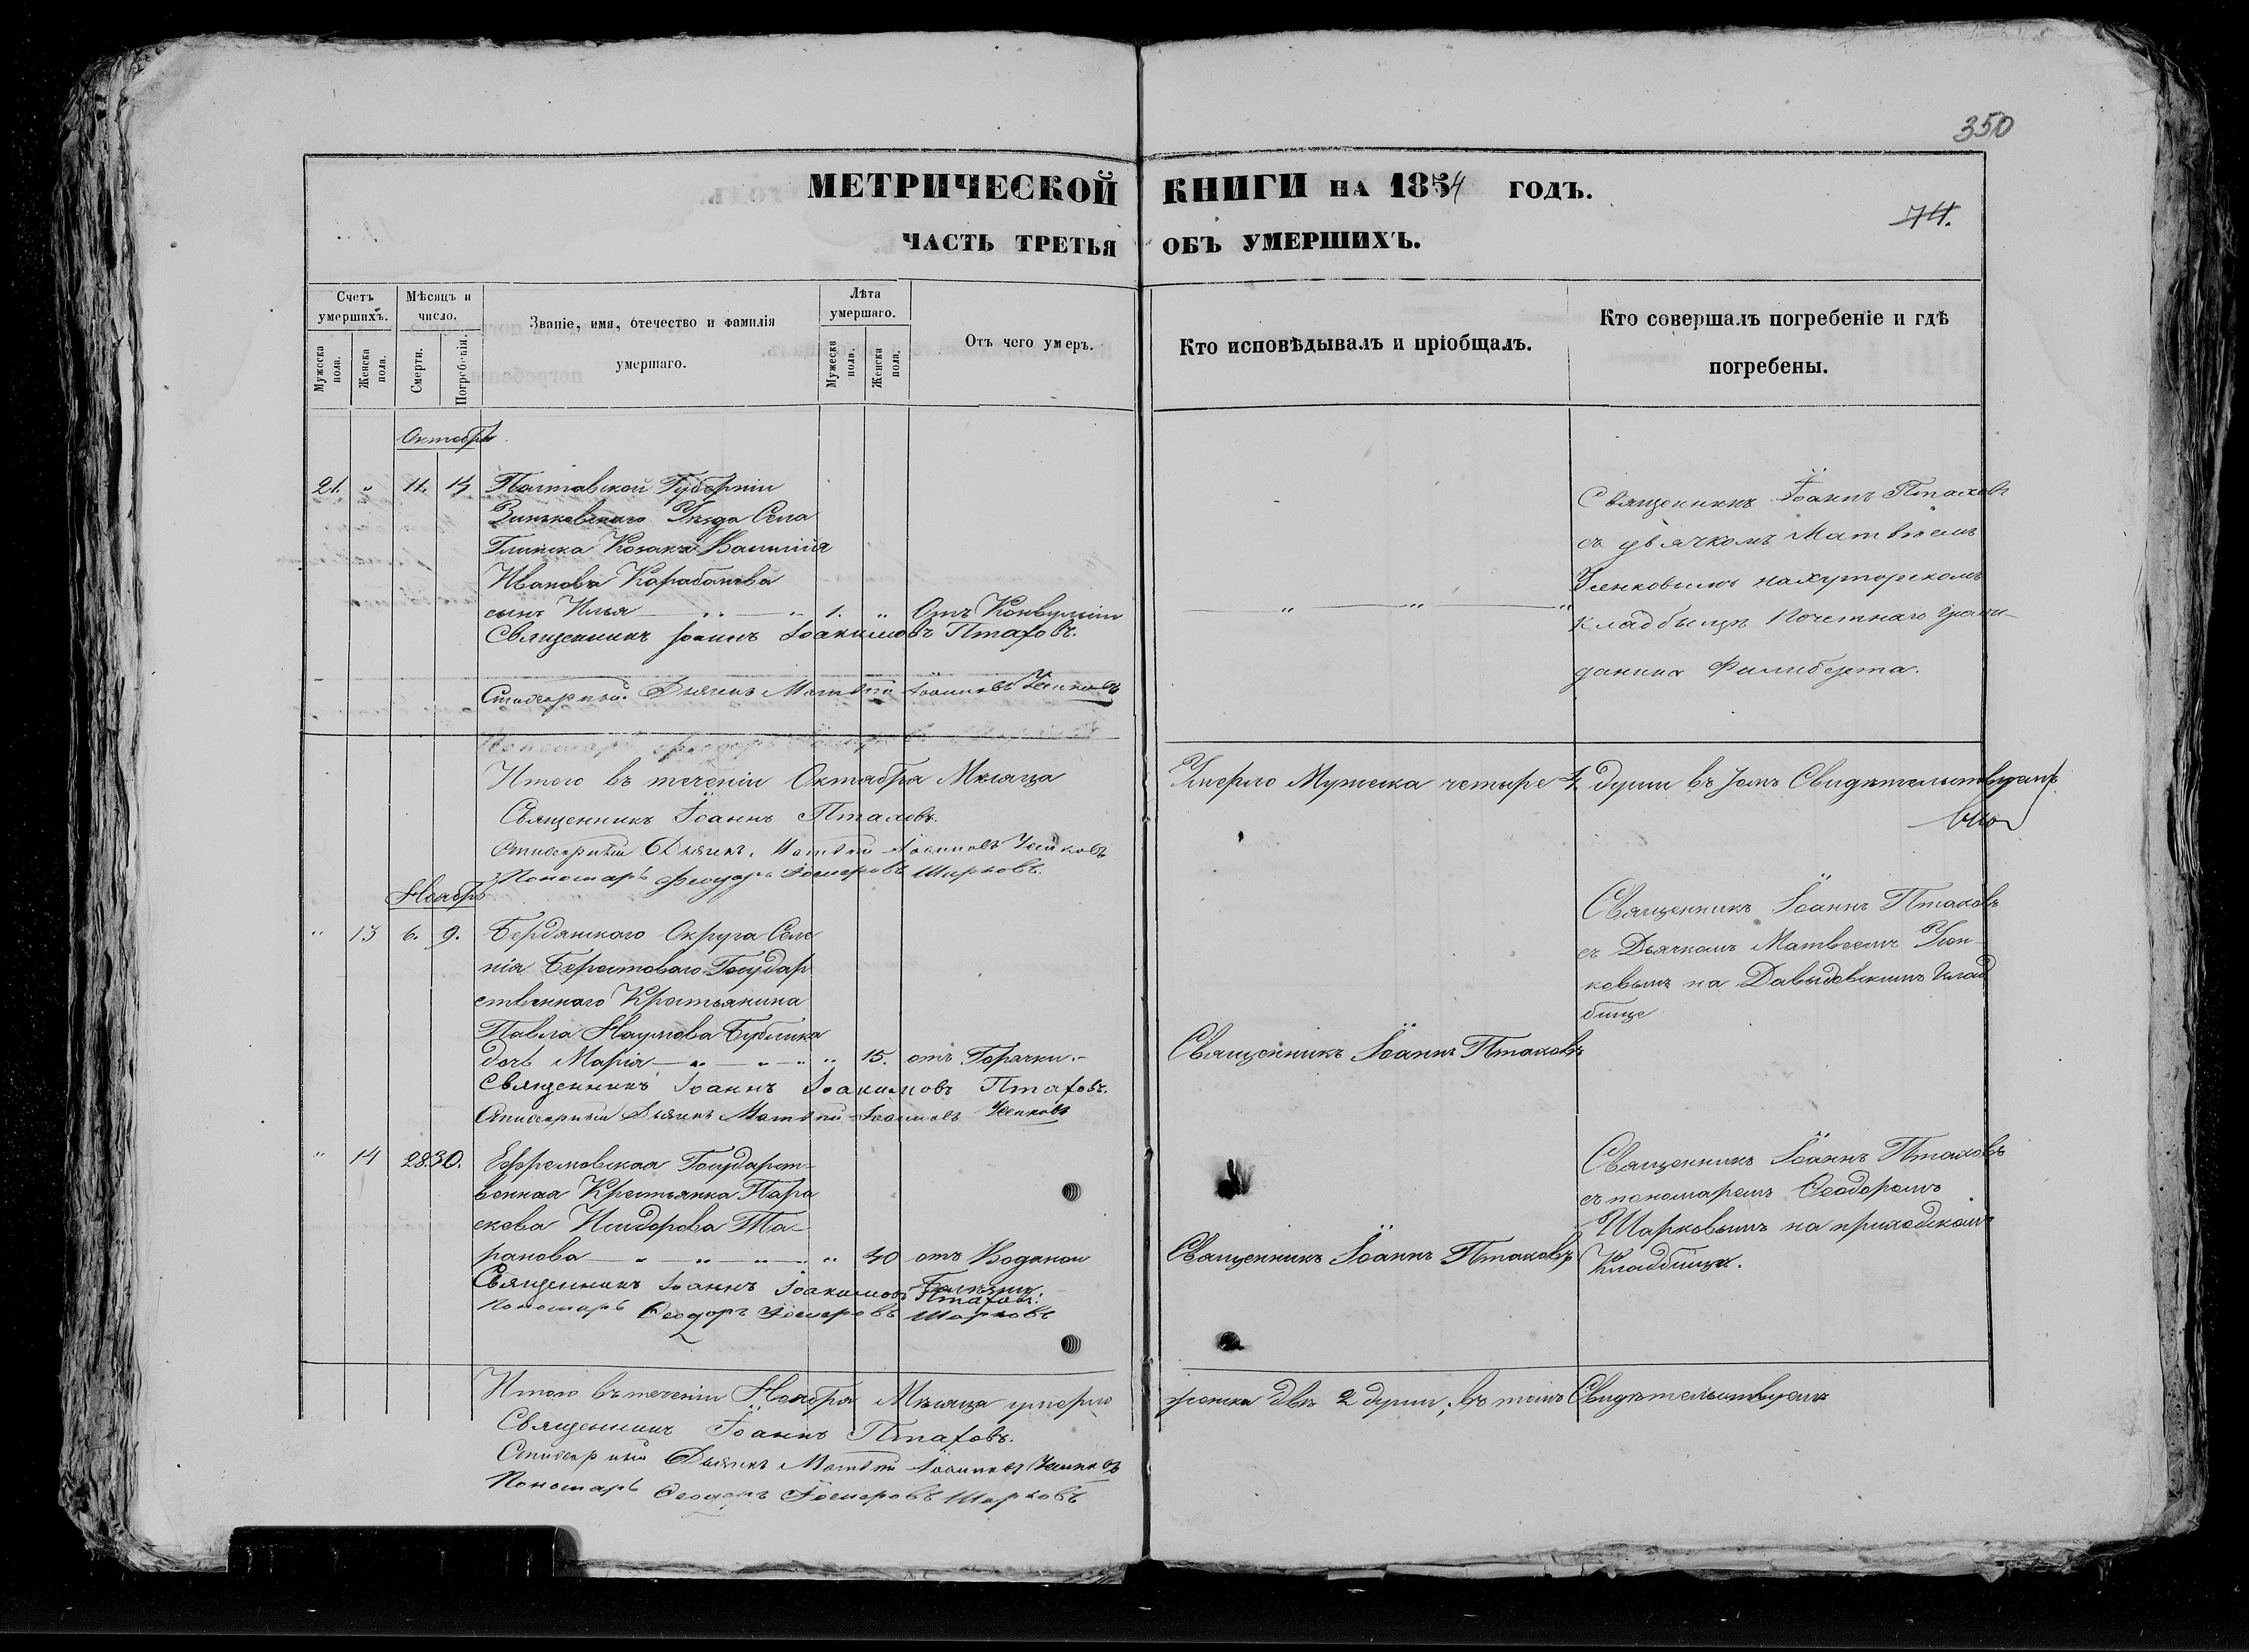 350
МЕТРИЧЕСКОЙ КНИГИ НА 1854 ГОДЪ.
74.
ЧАСТЬ ТРЕТЬЯ ОБЪ УМЕРШИХЪ.
Счетъ умершихъ.
Мужеска пола.
Женска пола.
Мѣсяцъ и число.
Смерти.
Погребенія.
Званіе, имя, отечество и фамилія
умершаго.
Лѣта умершаго.
Мужеска пола.
Женска пола.
Отъ чего умеръ.
Кто исповѣдывалъ и пріобщалъ.
Кто совершалъ погребеніе и гдѣ
погребены.
Октябрь
21. " 11. Полтавской Губерніи
Зиньковскаго Уѣзда Села
Глинска Козака Василія
Иванова Карабанова
сынъ Илья 1. " Отъ Конвульсіи
Священникъ Іоаннъ Іоакимовъ Птаховъ.
Дьячекъ Матѳій Іоанновъ
Священникъ Іоаннъ Птаховъ
съ дьячкомъ Матвѣемъ
на хуторскомъ
кладбыщѣ Почетнаго граж-
данина Филиберта.
Итого въ теченіи Октября Мѣсяца Умерло Мужеска четыре 4 души въ чемъ Свидѣтельствуемъ
Священникъ Іоаннъ Птаховъ.
Дьячекъ Матѳій Іоанновъ
Пономарь Ѳеодоръ Шарковъ.
Ноябрь
" 13 6. 9. Бердянскаго Округа Селе
нія Берестоваго Государ
ственнаго Крестьянина
Павла Наумова Бублика
дочь Марія " 15. отъ Горячки.
Священникъ Іоаннъ Іоакимовъ Птаховъ.
Дьячекъ Матѳій Іоанновъ
Священникъ Іоаннъ Птаховъ
Священникъ Іоаннъ Птаховъ
съ Дьячкомъ Матвеемъ
ковымъ на Давыдовскомъ Клад
бище
" 14 28. 30. Ефремовская Государст-
венная Крестьянка Пара
скева Исидорова Та-
ранова " 40 отъ Водяной
Болѣзни
Священникъ Іоаннъ Іоакимовъ Птаховъ.
Пономарь Ѳеодоръ Шарковъ
Священникъ Іоаннъ Птаховъ
Священникъ Іоаннъ Птаховъ
съ пономаремъ Ѳеодоромъ
Шарковымъ на приходскомъ
Кладбищѣ.
Итого въ теченіи Ноября Мѣсяца умерло женска двѣ 2 души, въ томъ Свидѣтельствуемъ
Священникъ Іоаннъ Птаховъ.
Дьячекъ Матѳій Іоанновъ
Пономарь Ѳеодоръ Шарковъ